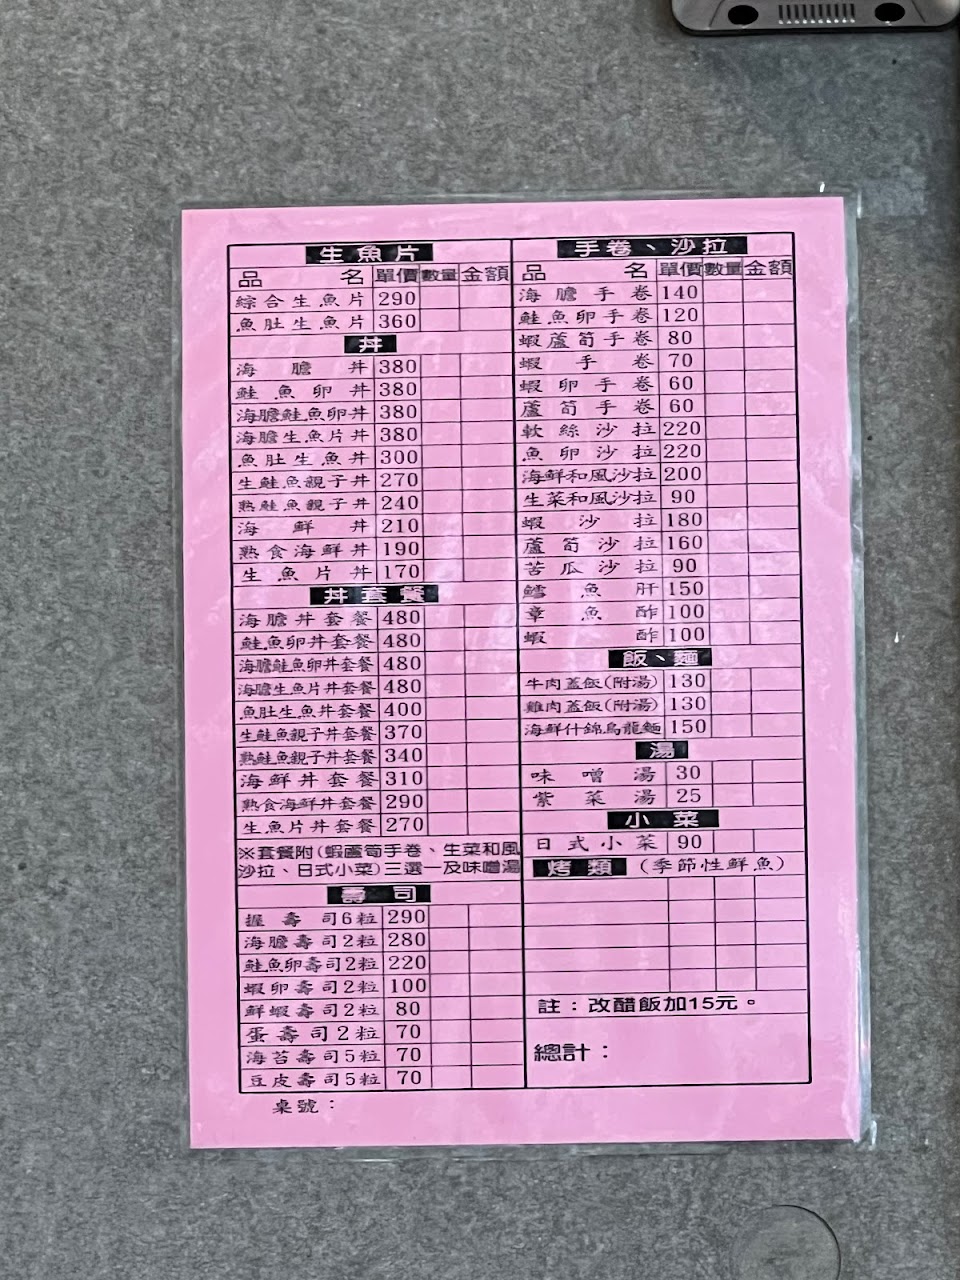 生魚片
品名 單價 數量 金額
綜合生魚片 290
魚肚生魚片 360
丼
海膽丼 380
鮭魚卵丼 380
海膽鮭魚卵丼 380
海膽生魚片丼 380
魚肚生魚丼 300
生鮭魚親子丼 270
熟鮭魚親子丼 240
海鮮丼 210
熟食海鮮丼 190
生魚片丼 170
丼套餐
海膽丼套餐 480
鮭魚卵丼套餐 480
海膽鮭魚卵丼套餐 480
海膽生魚片丼套餐 480
魚肚生魚丼套餐 400
生鮭魚親子丼套餐 370
熟鮭魚親子丼套餐 340
海鮮丼套餐 310
熟食海鮮丼套餐 290
生魚片丼套餐 270
※套餐附(蝦蘆筍手卷、生菜和風
沙拉、日式小菜)三選一及味噌湯
壽司
握壽司6粒 290
海膽壽司2粒 280
鮭魚卵壽司2粒 220
蝦卵壽司2粒 100
鮮蝦壽司2粒 80
蛋壽司2粒 70
海苔壽司5粒 70
豆皮壽司5粒 70
桌號：
手卷、沙拉
品名 單價 數量 金額
海膽手卷 140
鮭魚卵手卷 120
蝦蘆筍手卷 80
蝦手卷 70
蝦卵手卷 60
蘆筍手卷 60
軟絲沙拉 220
魚卵沙拉 220
海鮮和風沙拉 200
生菜和風沙拉 90
蝦沙拉 180
蘆筍沙拉 160
苦瓜沙拉 90
鱈魚肝 150
章魚酢 100
蝦酢 100
飯、麵
牛肉蓋飯(附湯) 130
雞肉蓋飯(附湯) 130
海鮮什錦烏龍麵 150
湯
味噌湯 30
紫菜湯 25
小菜
日式小菜 90
烤類 (季節性鮮魚)
註：改醋飯加15元。
總計：